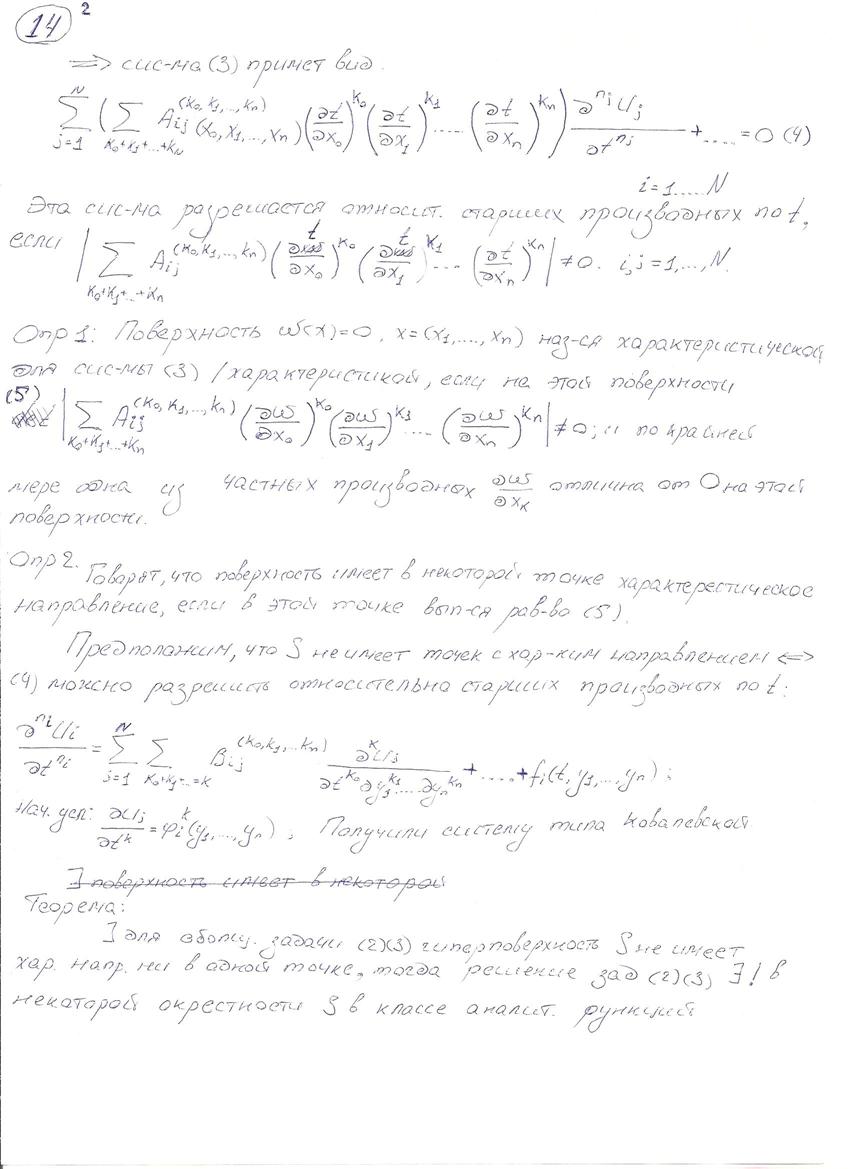 14 2
⟹ сис-ма (3) примет вид.
\sum_{j=1}^{N} ( \sum_{k_0+k_1+...+k_N} A_{ij}^{(k_0, k_1, ..., k_n)} (x_0, x_1, ..., x_n) (∂t/∂x_0)^{k_0} (∂t/∂x_1)^{k_1} ..... (∂t/∂x_n)^{k_n} ) ∂^{n_j} U_j / ∂t^{n_j} + ..... = 0 (4)
i = 1.....N
Эта сис-ма разрешается относит. старших производных по t,
если | \sum_{k_0+k_1+...+k_n} A_{ij}^{(k_0, k_1, ..., k_n)} (∂t/∂x_0)^{k_0} (∂t/∂x_1)^{k_1} .... (∂t/∂x_n)^{k_n} | ≠ 0. i,j = 1,...,N.
Опр 1: Поверхность ω(x)=0, x=(x_1,....,x_n) наз-ся характеристической
для сис-мы (3) /характеристикой, если на этой поверхности
(5) | \sum_{k_0+k_1+...+k_n} A_{ij}^{(k_0, k_1, ..., k_n)} (∂ω/∂x_0)^{k_0} (∂ω/∂x_1)^{k_1} .... (∂ω/∂x_n)^{k_n} | ≠ 0; и по крайней
мере одна из частных производных ∂ω/∂x_k отлична от 0 на этой
поверхности.
Опр 2. Говорят, что поверхность имеет в некоторой точке характерестическое
направление, если в этой точке вып-ся рав-во (5).
Предположим, что S не имеет точек с хар-ким направлением ⟺
(4) можно разрешить относительно старших производных по t:
∂^{n_i} U_i / ∂t^{n_i} = \sum_{j=1}^{N} \sum_{k_0+k_1+...=k} B_{ij}^{(k_0, k_1, ... k_n)} ∂^k U_j / ∂t^{k_0} ∂y_1^{k_1} ..... ∂y_n^{k_n} + ..... + f_i (t, y_1, ..., y_n) ;
Нач. усл: ∂U_j/∂t^k = φ_i^k (y_1, ..., y_n) ; Получили систему типа Ковалевской
∃ поверхность имеет в некоторой
Теорема:
∃ для обобщ. задачи (2)(3) гиперповерхность S не имеет
хар. напр. ни в одной точке, тогда решение зад (2)(3) ∃! в
некоторой окрестности S в классе аналит. функций